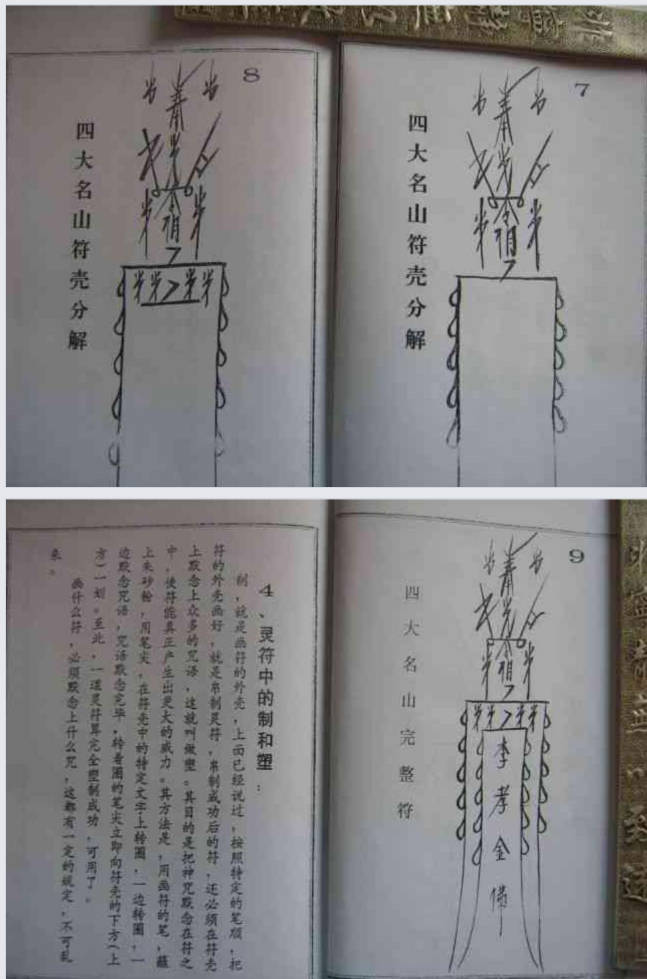 7
四大名山符壳分解
8
四大名山符壳分解
9
李孝金佛
四大名山完整符
4、灵符中的制和塑：
制，就是画符的外壳，上面已经说过，按照特定的笔顺，把
符的外壳画好，就是帛制灵符，帛制成功后的符，还必须在符壳
上默念上众多的咒语，这就叫做塑。其目的是把神咒默念在符之
中，使符能真正产生出更大的威力。其方法是，用画符的笔，蘸
上朱砂粉，用笔尖，在符壳中的特定文字上转圈，一边转圈，一
边默念咒语，咒语默念完毕，转着圈的笔尖立即向符壳的下方（上
方）一划。至此，一道灵符算完全塑制成功，可用了。
画什么符，必须默念上什么咒，这都有一定的规定，不可乱
来。